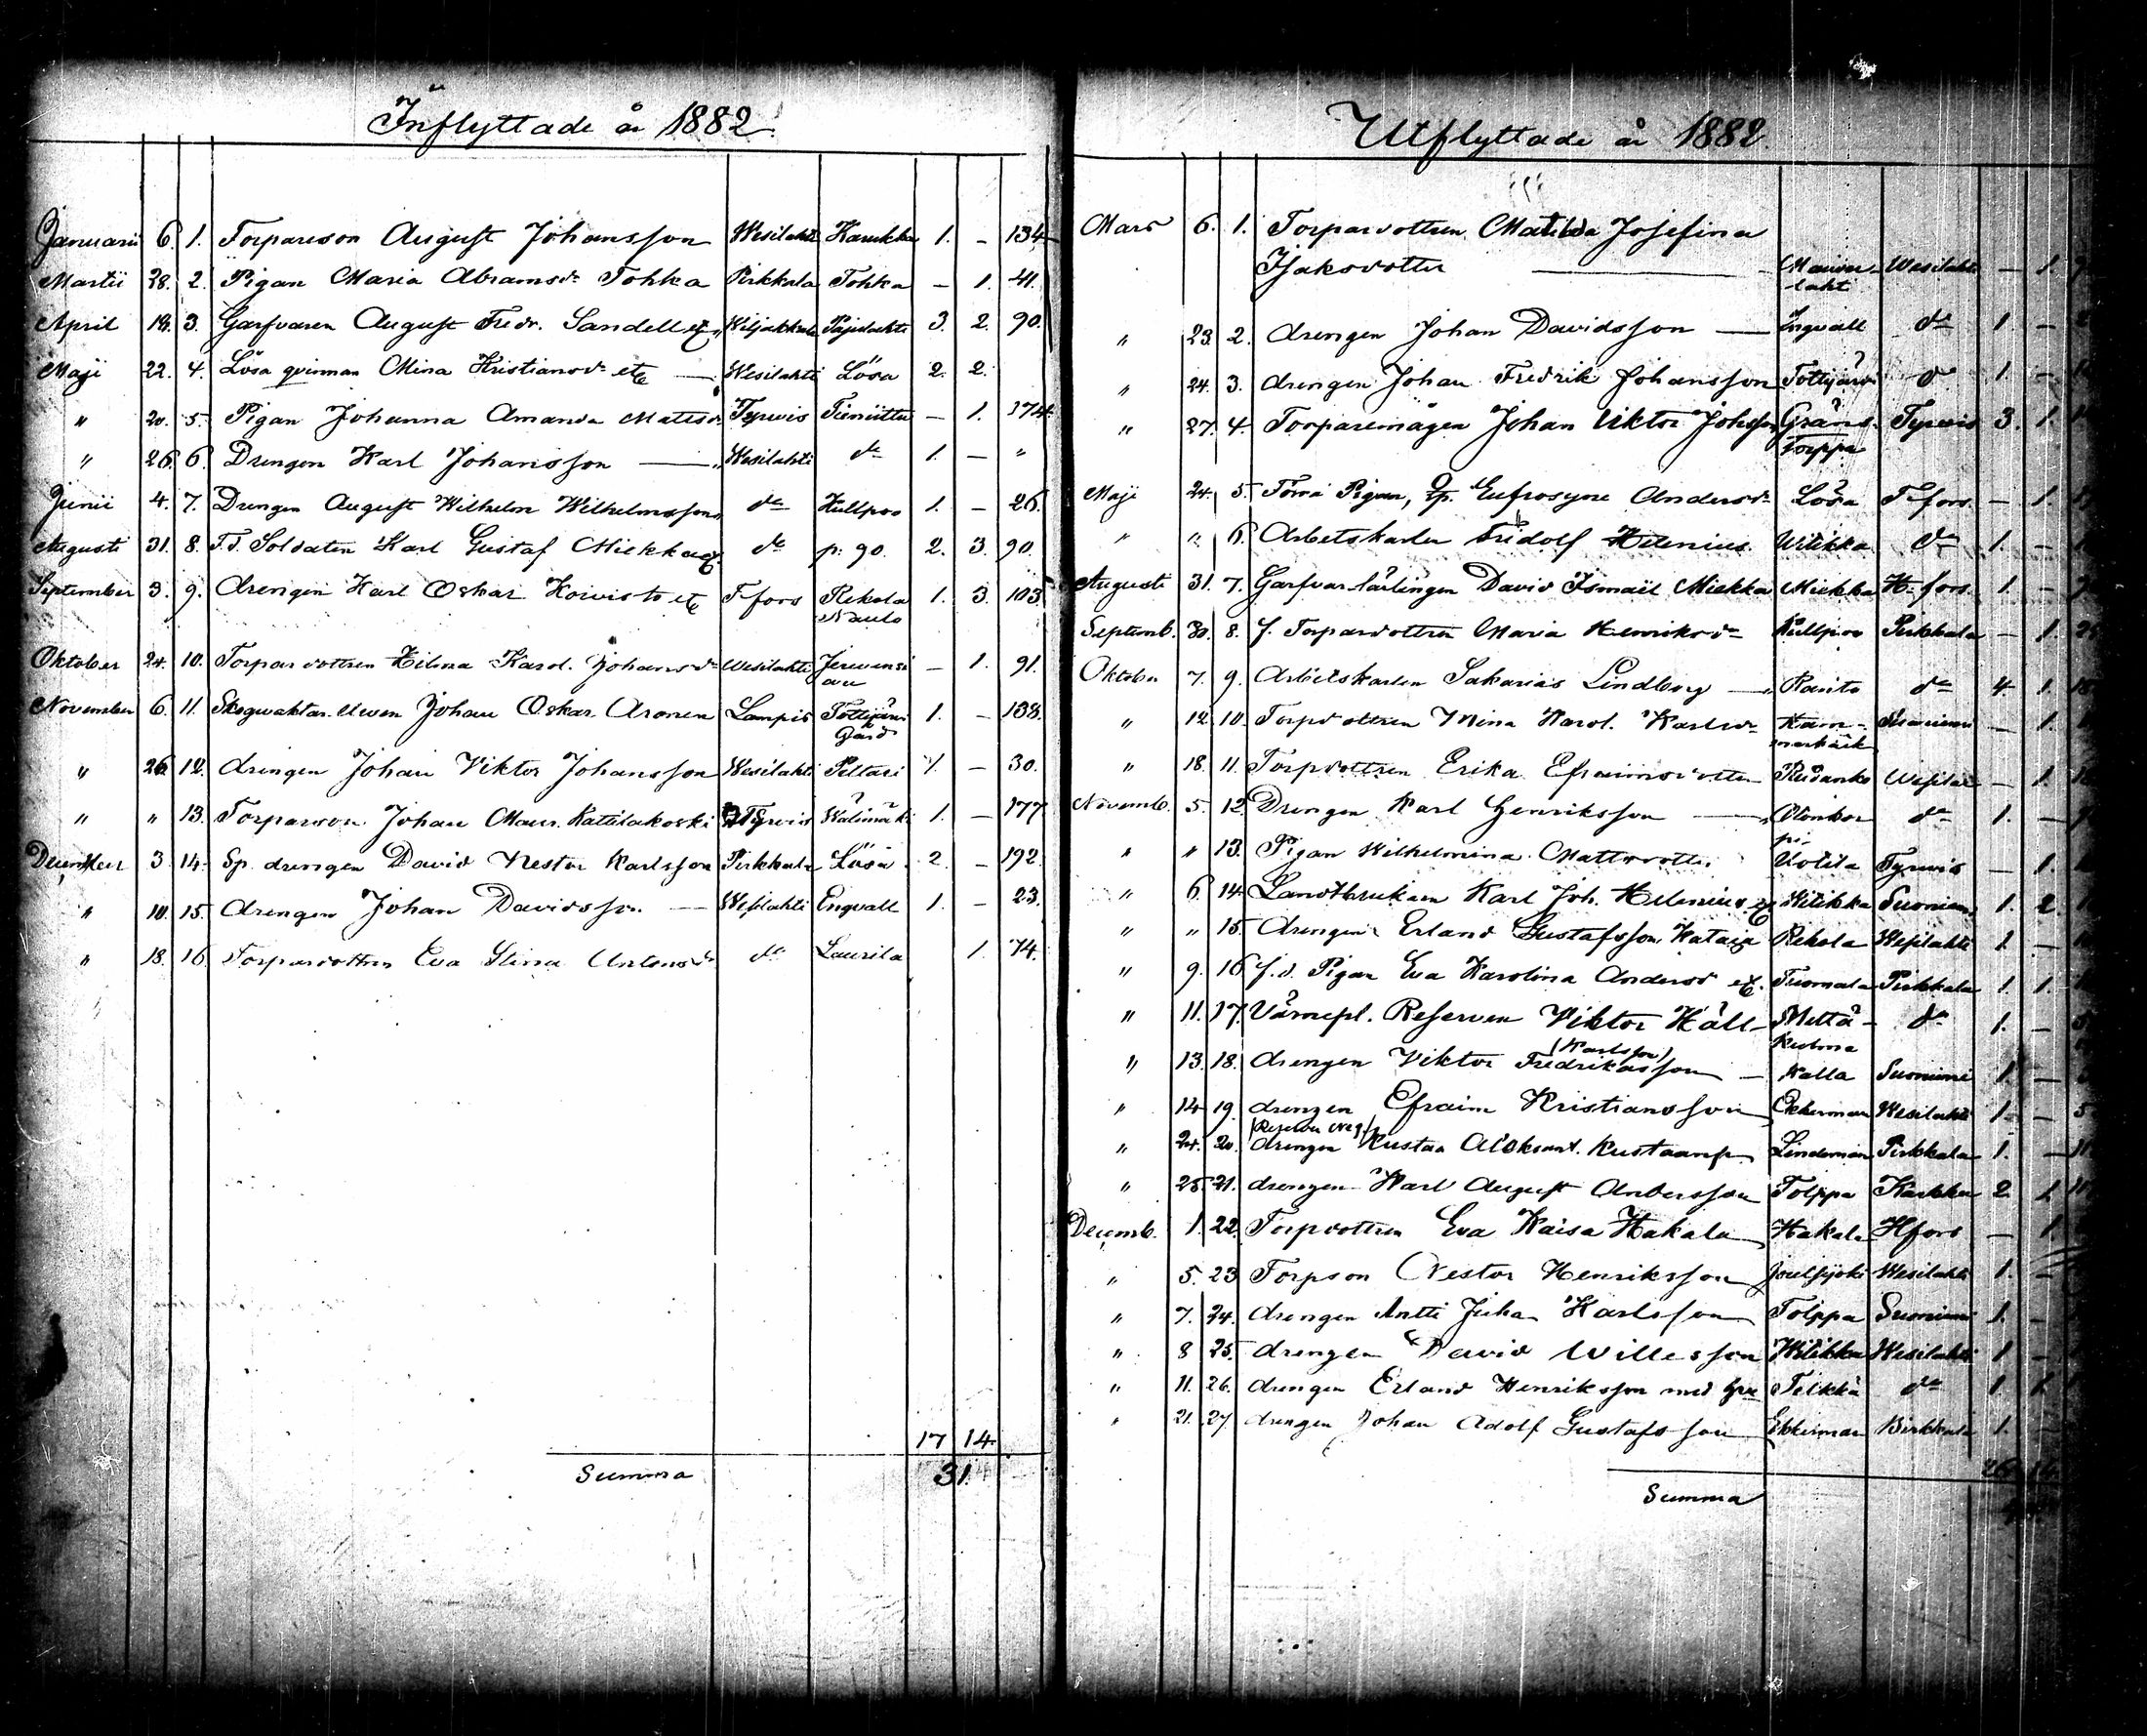 Inflyttade år 1882.
Januarii 6. 1. Torpareson August Johansson Wesilahti 1. – 134
Martii 28. 2. Pigan Maria Abramsdr Tohka Pirkkala Tohka – 1. 41.
April 18. 3. Garfvaren August Fredr. Sandell etc Wiljakkala Pajulahti 3. 2. 90.
Maji 22. 4. Lösa qvinnan Mina Kristiansdr etc — Wesilahti Lösa 2. 2.
" 20. 5. Pigan Johanna Amanda Mattsdr Tyrwis Tieniittu – 1. 174.
" 26. 6. Drengen Karl Johansson — Wesilahti do 1. – "
Junii 4. 7. Drengen August Wilhelm Wilhelmsson do Kullpoo 1. – 26.
Augusti 31. 8. F.d. Soldaten Karl Gustaf Miekka etc do p: 90. 2. 3. 90.
September 3. 9. drengen Karl Oskar Koivisto etc Tfors Rekola 1. 3. 103
Naulo
Oktober 24. 10. Torpardottren Hilma Karol. Johansdr Wesilahti – 1. 91.
November 6. 11. Skogwaktar. Johan Oskar Aronen Lampis Tottijärvi 1. – 138.
Gård
" 26. 12. drengen Johan Viktor Johansson Wesilahti Peltari 1. – 30.
" " 13. Torpareson Johan Maur. Katilakoski Tyrvis Wälimäki 1. – 177
December 3 14. Sp. drengen David Nestor Karlsson Pirkkala Lösa 2. – 192.
" 10. 15. drengen Johan Davidsson — Wesilahti Engvall 1. – 23.
" 18. 16. Torpardottren Eva Stina Antonsdr do Laurila 1. 74.
17 14
Summa 31.
Utflyttade år 1882.
Mars 6. 1. Torpardottren Matilda Josefina
Isaksdotter — Wesilahti – 1.
laht
" 23. 2. drengen Johan Davidsson — Engvall do 1 –
" 24. 3. drengen Johan Fredrik Johansson Tottijärvi do 1. –
" 27. 4. Torparemågen Johan Viktor Johsson Gräns- Tyrvis 3. 1.
Torppa
Maji 24. 5. Pigan, Eufrosyne Andersdr Lösa T-fors – 1.
" " 6. Arbetskarlen Fridolf Helenius Wilikka do 1. –
Augusti 31. 7. Garfvar-lärlingen David Ismaël Miekka Miekka H-fors. 1. –
Septemb. 30. 8. f. Torpardottren Maria Henriksdr Kullpoo Pirkkala – 1.
Oktober 7. 9. Arbetskarlen Sakarias Lindberg — Ranto do 4 1.
" 12. 10. Torpdottren Mina Karol. Karlsdr Suoniemi – 1.
" 18. 11. Torpdottren Erika Efraimsdotter Wesilat – 1.
Novemb. 5. 12. Drengen Karl Henriksson — do 1. –
" " 13. Pigan Wilhelmina Mattsdotter Kotila Tyrvis – 1.
" 6. 14. Landtbrukaren Karl Joh. Helenius etc Wilikka Suoniem. 1. 2.
" " 15. drengen Erland Gustafsson Kataja Rekola Wesilahti 1 –
" 9. 16. f.d. Pigan Eva Karolina Andersd etc. Tuomala Pirkkala 1. 1.
" 11. 17. Värnepl. Reserven Viktor Häll- Mettä- do 1. –
Kulma
(Karlsson)
" 13. 18. drengen Viktor Fredriksson – Kalla Suoniemi 1. –
" 14 19. drengen Efraim Kristiansson Ekkerman Wesilahti 1. –
" 24. 20. drengen Kustaa Aleksant. Kustaanp. Lindeman Pirkkala 1. –
" 25. 21. drengen Karl August Andersson Tolppa Karkku 2. 1
Decemb. 1. 22. Torpdottren Eva Kaisa Hakala Hakala Hfors – 1.
" 5. 23 Torpson Nestor Henriksson Wesilahti 1. –
" 7. 24. drengen Antti Juha Karlsson Tolppa Suoniemi 1. –
" 8 25. drengen David Willesson Wilikka Wesilahti 1 –
" 11. 26. drengen Erland Henriksson med Teikkä do 1.
" 21. 27. drengen Johan Adolf Gustafsson Ekkerman Birkkala 1. –
Summa